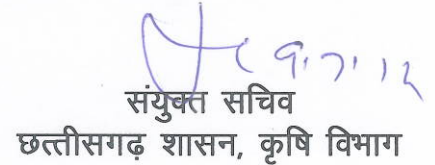 9.7.12
संयुक्त सचिव
छत्तीसगढ़ शासन, कृषि विभाग